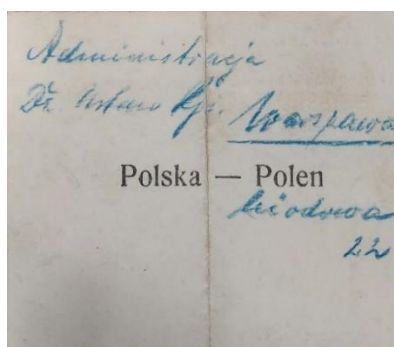 Administracja
Dz. Ustaw Rzp. Warszawa
Polska — Polen
Miodowa
22